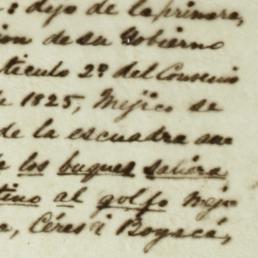 : dijo de la primera,
ion de su Gobierno
rticulo 2º del Convenio
e 1825, Mejico se
de la escuadra
los buques
tino al golfo Meji-
a, Céres i Boyacá,